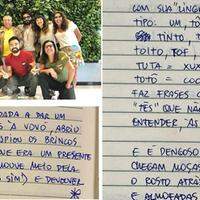 DADA A DAR UM
"A VOVÓ", ABRIU
OS BRINCOS
QUE ERA UM PRESENTE
MEIO PELA
SIM) E DEVOLVER
COM SUA "LÍNG
TIPO: UM, TÔ
TINTO, T
TOITO, TOF,
TUTA = XUX
TOTÔ = COC
FAZ FRASES C
"TÊS" QUE NÃO
ENTENDER, AS
E É DENGOSO
CHEGAM MOÇAS
O ROSTO ATRÁ
E ALMOFADAS